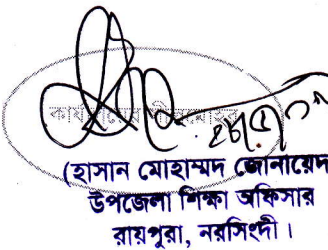 (হাসান মোহাম্মদ জোনায়েদ
উপজেলা শিক্ষা অফিসার
রায়পুরা, নরসিংদী।